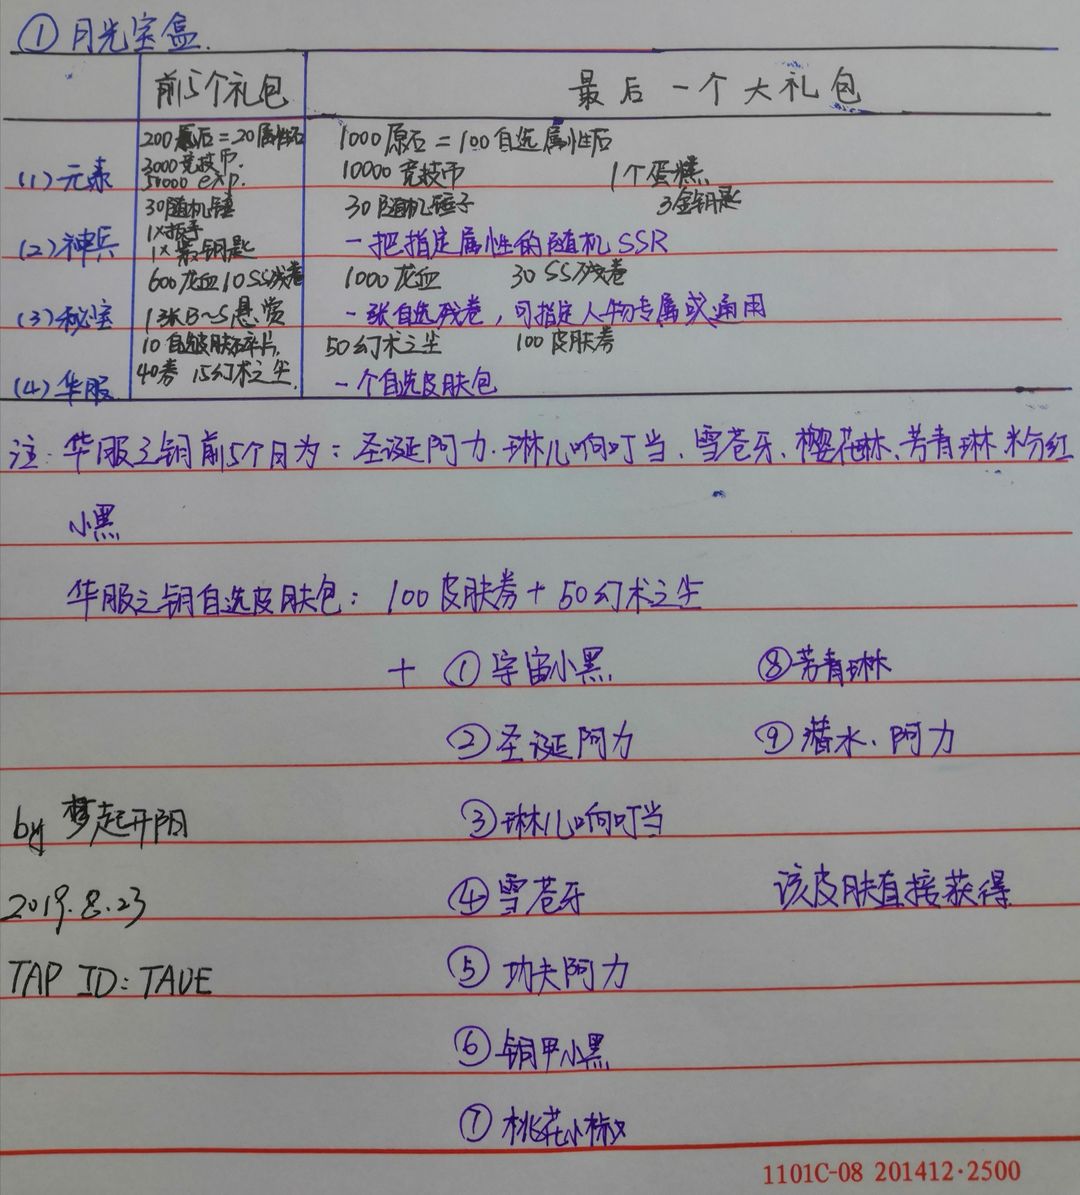 ① 月光宝盒.
前5个礼包 最后一个大礼包
200原石=20属性石 1000原石=100自选属性石
3000竞技币. 10000竞技币 1个蛋糕
(1)元素 50000 exp.
30随机锤 30随机锤子 3金钥匙
1×扳手
(2)神兵 1×紫钥匙 一把指定属性的随机SSR
600龙血10SS残卷 1000龙血 30SS残卷
(3)秘宝 1张B~S悬赏 一张自选残卷,可指定人物专属或通用
10自选皮肤碎片. 50幻术之尘 100皮肤券
(4)华服 40券 15幻术之尘. 一个自选皮肤包
注:华服之钥前5个月为:圣诞阿力.琳儿响叮当、雪苍牙、樱花琳、芳青琳 粉红
小黑
华服之钥自选皮肤包:100皮肤券+50幻术之尘
+ ①宇宙小黑 ⑧芳青琳
②圣诞阿力 ⑨潜水、阿力
by 梦起开阳 ③琳儿响叮当
2019.8.23 ④雪苍牙 该皮肤直接获得
TAP ID:TAVE ⑤功夫阿力
⑥钢甲小黑
⑦桃花小椒
1101C-08 201412·2500